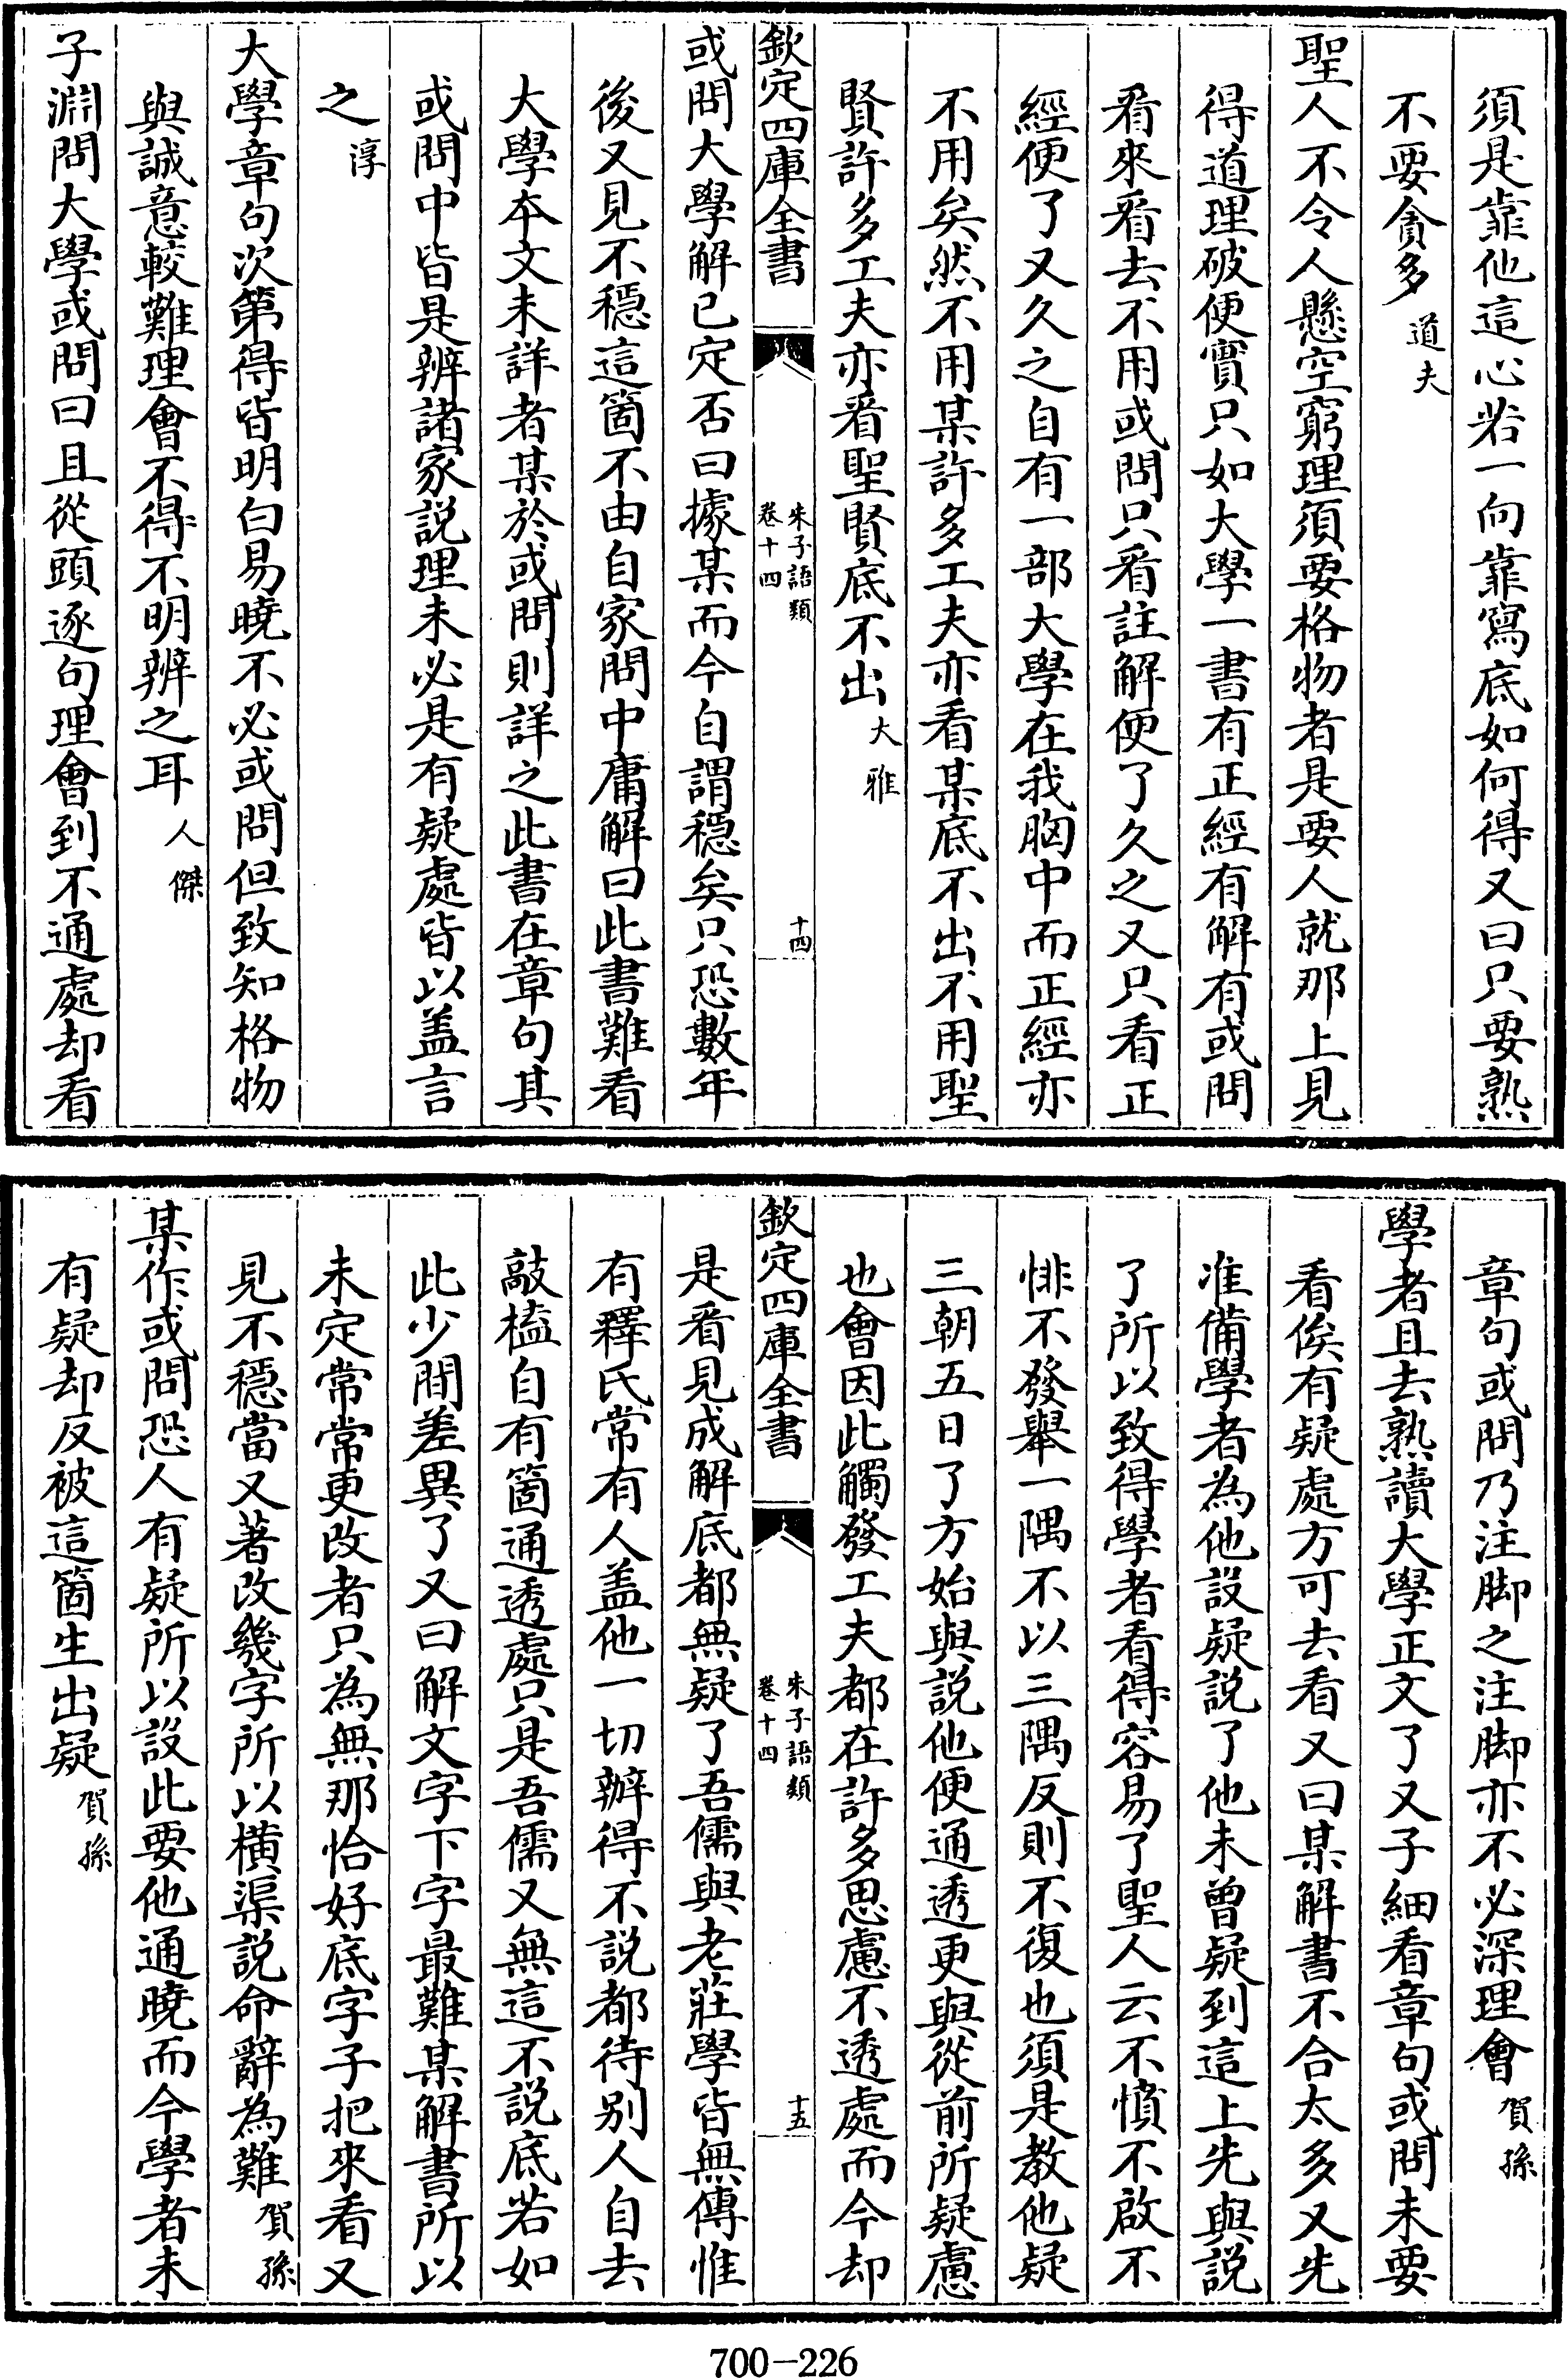 須是靠他這心若一向靠寫底如何得又曰只要熟
不要貪多道夫
聖人不令人懸空窮理須要格物者是要人就那上見
得道理破便實只如大學一書有正經有解有或問
看來看去不用或問只看註解便了久之又只看正
經便了又久之自有一部大學在我胸中而正經亦
不用矣然不用某許多工夫亦看某底不出不用聖
賢許多工夫亦看聖賢底不出大雅
欽定四庫全書 朱子語類 卷十四 十四
或問大學解已定否曰據某而今自謂穩矣只恐數年
後又見不穩這箇不由自家問中庸解曰此書難看
大學本文未詳者某於或問則詳之此書在章句其
或問中皆是辨諸家說理未必是有疑處皆以盖言
之淳
大學章句次第得皆明白易曉不必或問但致知格物
與誠意較難理會不得不明辨之耳人傑
子淵問大學或問曰且從頭逐句理會到不通處却看
章句或問乃注脚之注脚亦不必深理會賀孫
學者且去熟讀大學正文了又子細看章句或問未要
看俟有疑處方可去看又曰某解書不合太多又先
准備學者為他設疑說了他未曾疑到這上先與說
了所以致得學者看得容易了聖人云不憤不啟不
悱不發舉一隅不以三隅反則不復也須是教他疑
三朝五日了方始與說他便通透更與從前所疑慮
也會因此觸發工夫都在許多思慮不透處而今却
欽定四庫全書 朱子語類 卷十四 十五
是看見成解底都無疑了吾儒與老莊學皆無傳惟
有釋氏常有人盖他一切辦得不說都待別人自去
敲榼自有箇通透處只是吾儒又無這不說底若如
此少間差異了又曰解文字下字最難某解書所以
未定常常更改者只為無那恰好底字子把來看又
見不穩當又著改幾字所以橫渠說命辭為難賀孫
某作或問恐人有疑所以設此要他通曉而今學者未
有疑却反被這箇生出疑賀孫
700-226